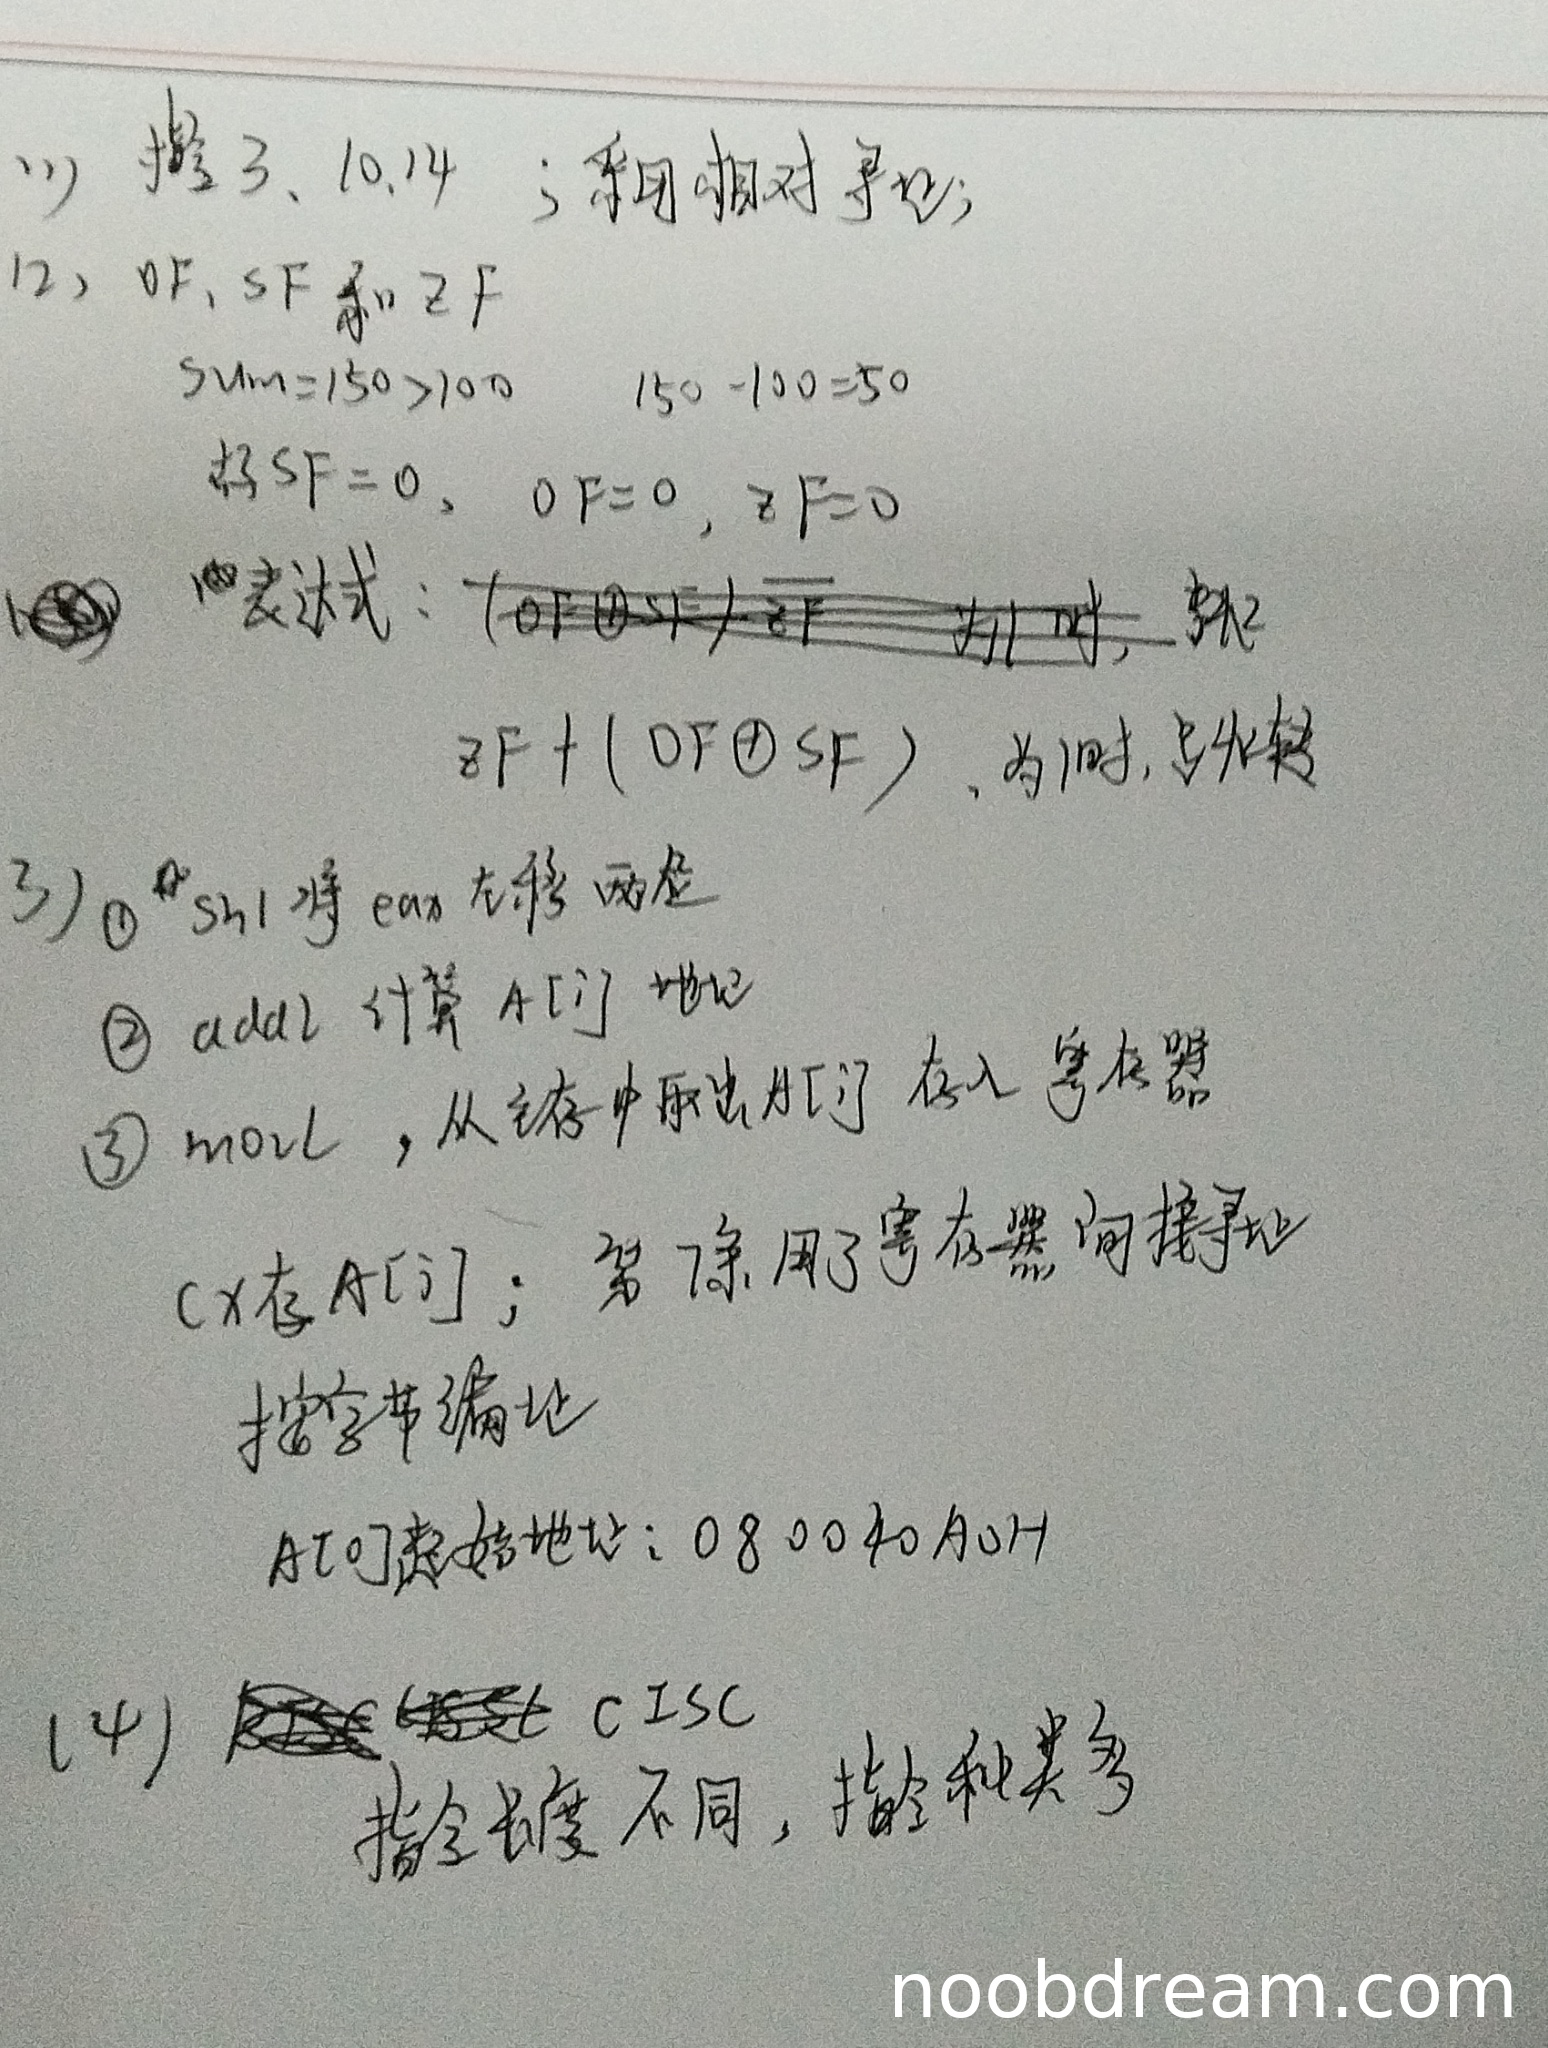 (1) 指令3、10、14 ;采用相对寻址;
(2) OF、SF和ZF
sum=150>100 150-100=50
SF=0、 OF=0, ZF=0
表达式: (OF⊕SF)·ZF 为1时,
ZF+(OF⊕SF)、为1时,
3) ① shl 将 eax 左移两位
② addl 计算 A[i] 地址
③ movl ,从主存中取出A[i] 存入寄存器
CX存A[i]; 用了寄存器间接寻址
按字节编址
A[0]起始地址: 080040A0H
(4) CISC
指令长度不同,指令种类多
noobdream.com